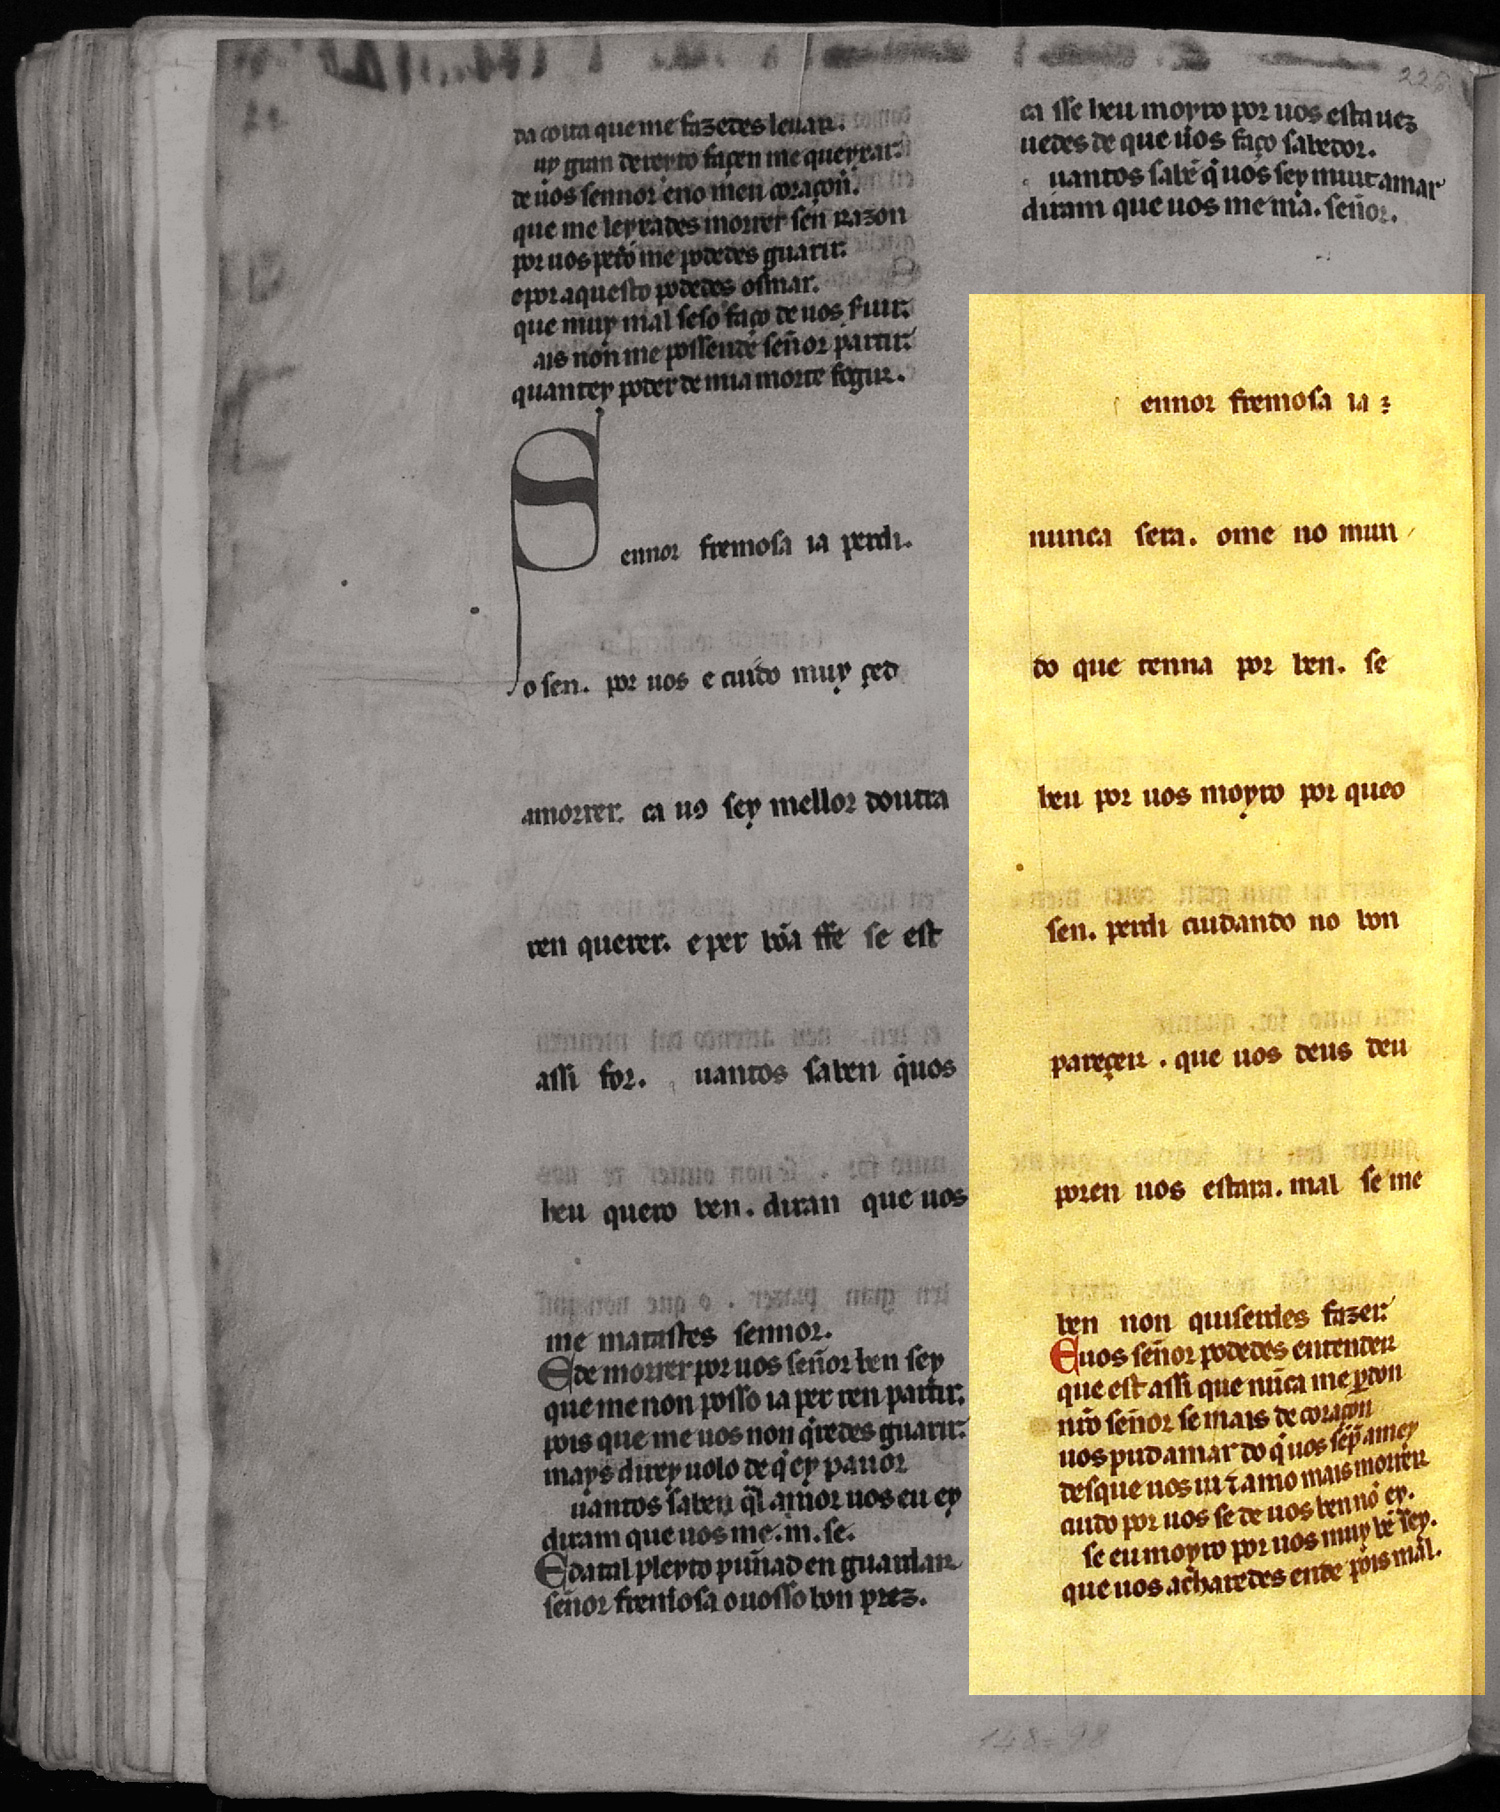 da coita que me fazedes leuar.
uy gran dereyto façen me queyxar.
de uos sennor eno meu coraçon.
que me leyxades morrer sen razon
por uos pero me podedes guarir.
epor aquesto podedes osmar.
que muy mal seso faço de uos seruir.
ais non me possende señor partir.
quantey poder de mia morte fogir.
S ennor fremosa ia perdi.
o sen. por uos e cuido muy çed
amorrer. ca uꝯ sey mellor doutra
ren querer. e per bõa ffe se est
assi for. uantos saben q̇uos
heu quero ben. diran que uos
me matastes sennor.
E de morrer por uos señor ben sey
que me non posso ia per ren partir.
pois que me uos non q̇redes guarir.
mays direy uolo de q̇ ey pauor
uantos saben q̇l amor uos eu ey
diram que uos me. m. se.
E datal pleyto puñad en guardar
señor fremosa o uosso bon prez.
ca sse heu moyro por uos esta uez
uedes de que uos faço sabedor.
uantos sabẽ q̇ uos sey muit amar
diram que uos me ma. señor.
ennor fremosa ia :
nunca sera. ome no mun
do que tenna por ben. se
heu por uos moyro por queo
sen. perdi cuidando no bon
pareçer. que uos deus deu
poren uos estara. mal se me
ben non quiserdes fazer.
Euos señor podedes entender
que est assi que nũca me ꝑdon
nr̃o señor se mais de coraçon
uos pud amar do q̇ uos sẽp̃ amey
desque uos ui ⁊ amo mais morrer
cuido por uos se de uos ben nõ ey.
se eu moyro por uos muy bẽ sey.
que uos acharedes ende pois mal.
148=98